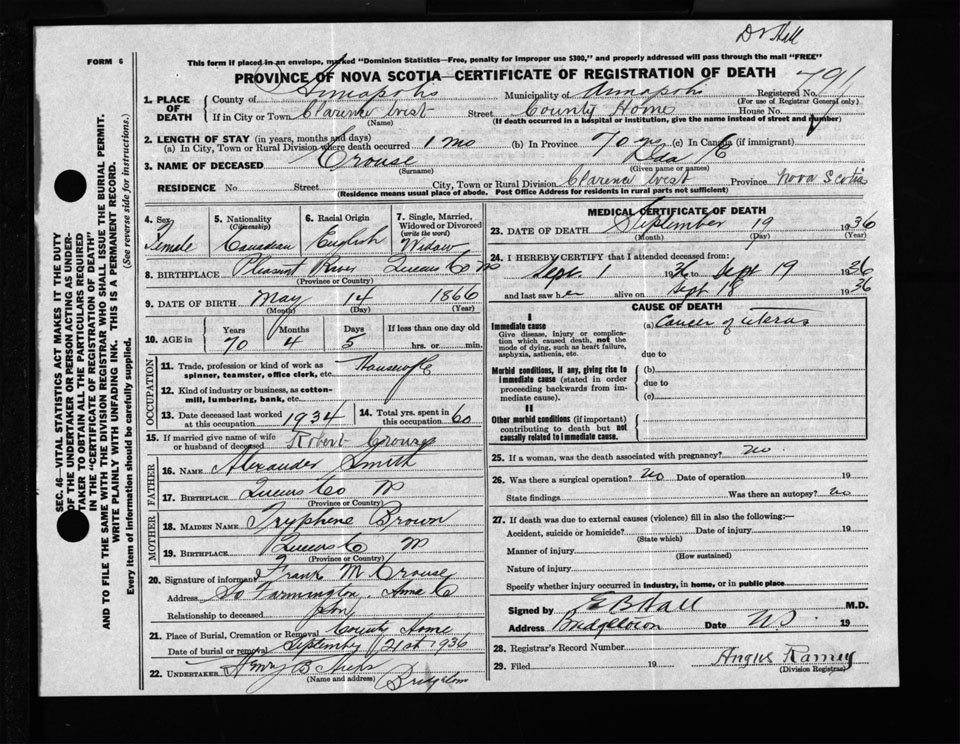 Dr Hall
FORM 6
This form if placed in an envelope, marked "Dominion Statistics—Free, penalty for improper use $300," and properly addressed will pass through the mail "FREE"
PROVINCE OF NOVA SCOTIA—CERTIFICATE OF REGISTRATION OF DEATH
1. PLACE OF DEATH
County of Annapolis Municipality of Annapolis Registered No. 791
(For use of Registrar General only)
If in City or Town Clarence West Street County Home House No.
(Name) (If death occurred in a hospital or institution, give the name instead of street and number)
2. LENGTH OF STAY (in years, months and days)
(a) In City, Town or Rural Division where death occurred 1 mo (b) In Province 70 (c) In Canada (if immigrant)
3. NAME OF DECEASED Crouse Ida E
(Surname) (Given name or names)
RESIDENCE No. Street City, Town or Rural Division Clarence West Province Nova Scotia
(Residence means usual place of abode. Post Office Address for residents in rural parts not sufficient)
4. Sex Female
5. Nationality (Citizenship) Canadian
6. Racial Origin English
7. Single, Married, Widowed or Divorced (write the word) Widow
8. BIRTHPLACE Pleasant River Queens Co NS
(Province or County)
9. DATE OF BIRTH May 14 1866
(Month) (Day) (Year)
10. AGE in Years 70 Months 4 Days 5 If less than one day old hrs. or min.
OCCUPATION
11. Trade, profession or kind of work as spinner, teamster, office clerk, etc. Housewife
12. Kind of industry or business, as cotton-mill, lumbering, bank, etc.
13. Date deceased last worked at this occupation 1934
14. Total yrs. spent in 60
15. If married give name of wife or husband of deceased Robert Crouse
FATHER
16. NAME Alexander Smith
17. BIRTHPLACE Queens Co NS
(Province or County)
MOTHER
18. MAIDEN NAME Tryphene Brown
19. BIRTHPLACE Queens Co NS
(Province or County)
20. Signature of informant Frank M Crouse
Address So Farmington, Anna Co
Relationship to deceased Son
21. Place of Burial, Cremation or Removal County Home
Date of burial or removal September 21st 1936
22. UNDERTAKER
(Name and address)
MEDICAL CERTIFICATE OF DEATH
23. DATE OF DEATH September 19 1936
(Month) (Day) (Year)
24. I HEREBY CERTIFY that I attended deceased from:
Sept. 1 1936 to Sept 19 1936
and last saw her alive on Sept 18 1936
CAUSE OF DEATH
I
Immediate cause
Give disease, injury or complication which caused death, not the mode of dying, such as heart failure, asphyxia, asthenia, etc.
(a) Cancer of uterus
due to
Morbid conditions, if any, giving rise to immediate cause (stated in order proceeding backwards from immediate cause).
(b)
due to
(c)
II
Other morbid conditions (if important) contributing to death but not causally related to immediate cause.
25. If a woman, was the death associated with pregnancy? No
26. Was there a surgical operation? No Date of operation 19
State findings Was there an autopsy? No
27. If death was due to external causes (violence) fill in also the following:—
Accident, suicide or homicide? Date of injury 19
(State which)
Manner of injury
(How sustained)
Nature of injury
Specify whether injury occurred in industry, in home, or in public place
Signed by E B Hall M.D.
Address Bridgetown Date 19
28. Registrar's Record Number
29. Filed 19 Angus Ramey
(Division Registrar)
SEC. 46—VITAL STATISTICS ACT MAKES IT THE DUTY
OF THE UNDERTAKER OR PERSON ACTING AS UNDER-
TAKER TO OBTAIN ALL THE PARTICULARS REQUIRED
IN THE "CERTIFICATE OF REGISTRATION OF DEATH"
AND TO FILE THE SAME WITH THE DIVISION REGISTRAR WHO SHALL ISSUE THE BURIAL PERMIT.
WRITE PLAINLY WITH UNFADING INK. THIS IS A PERMANENT RECORD.
Every item of information should be carefully supplied. (See reverse side for instructions.)